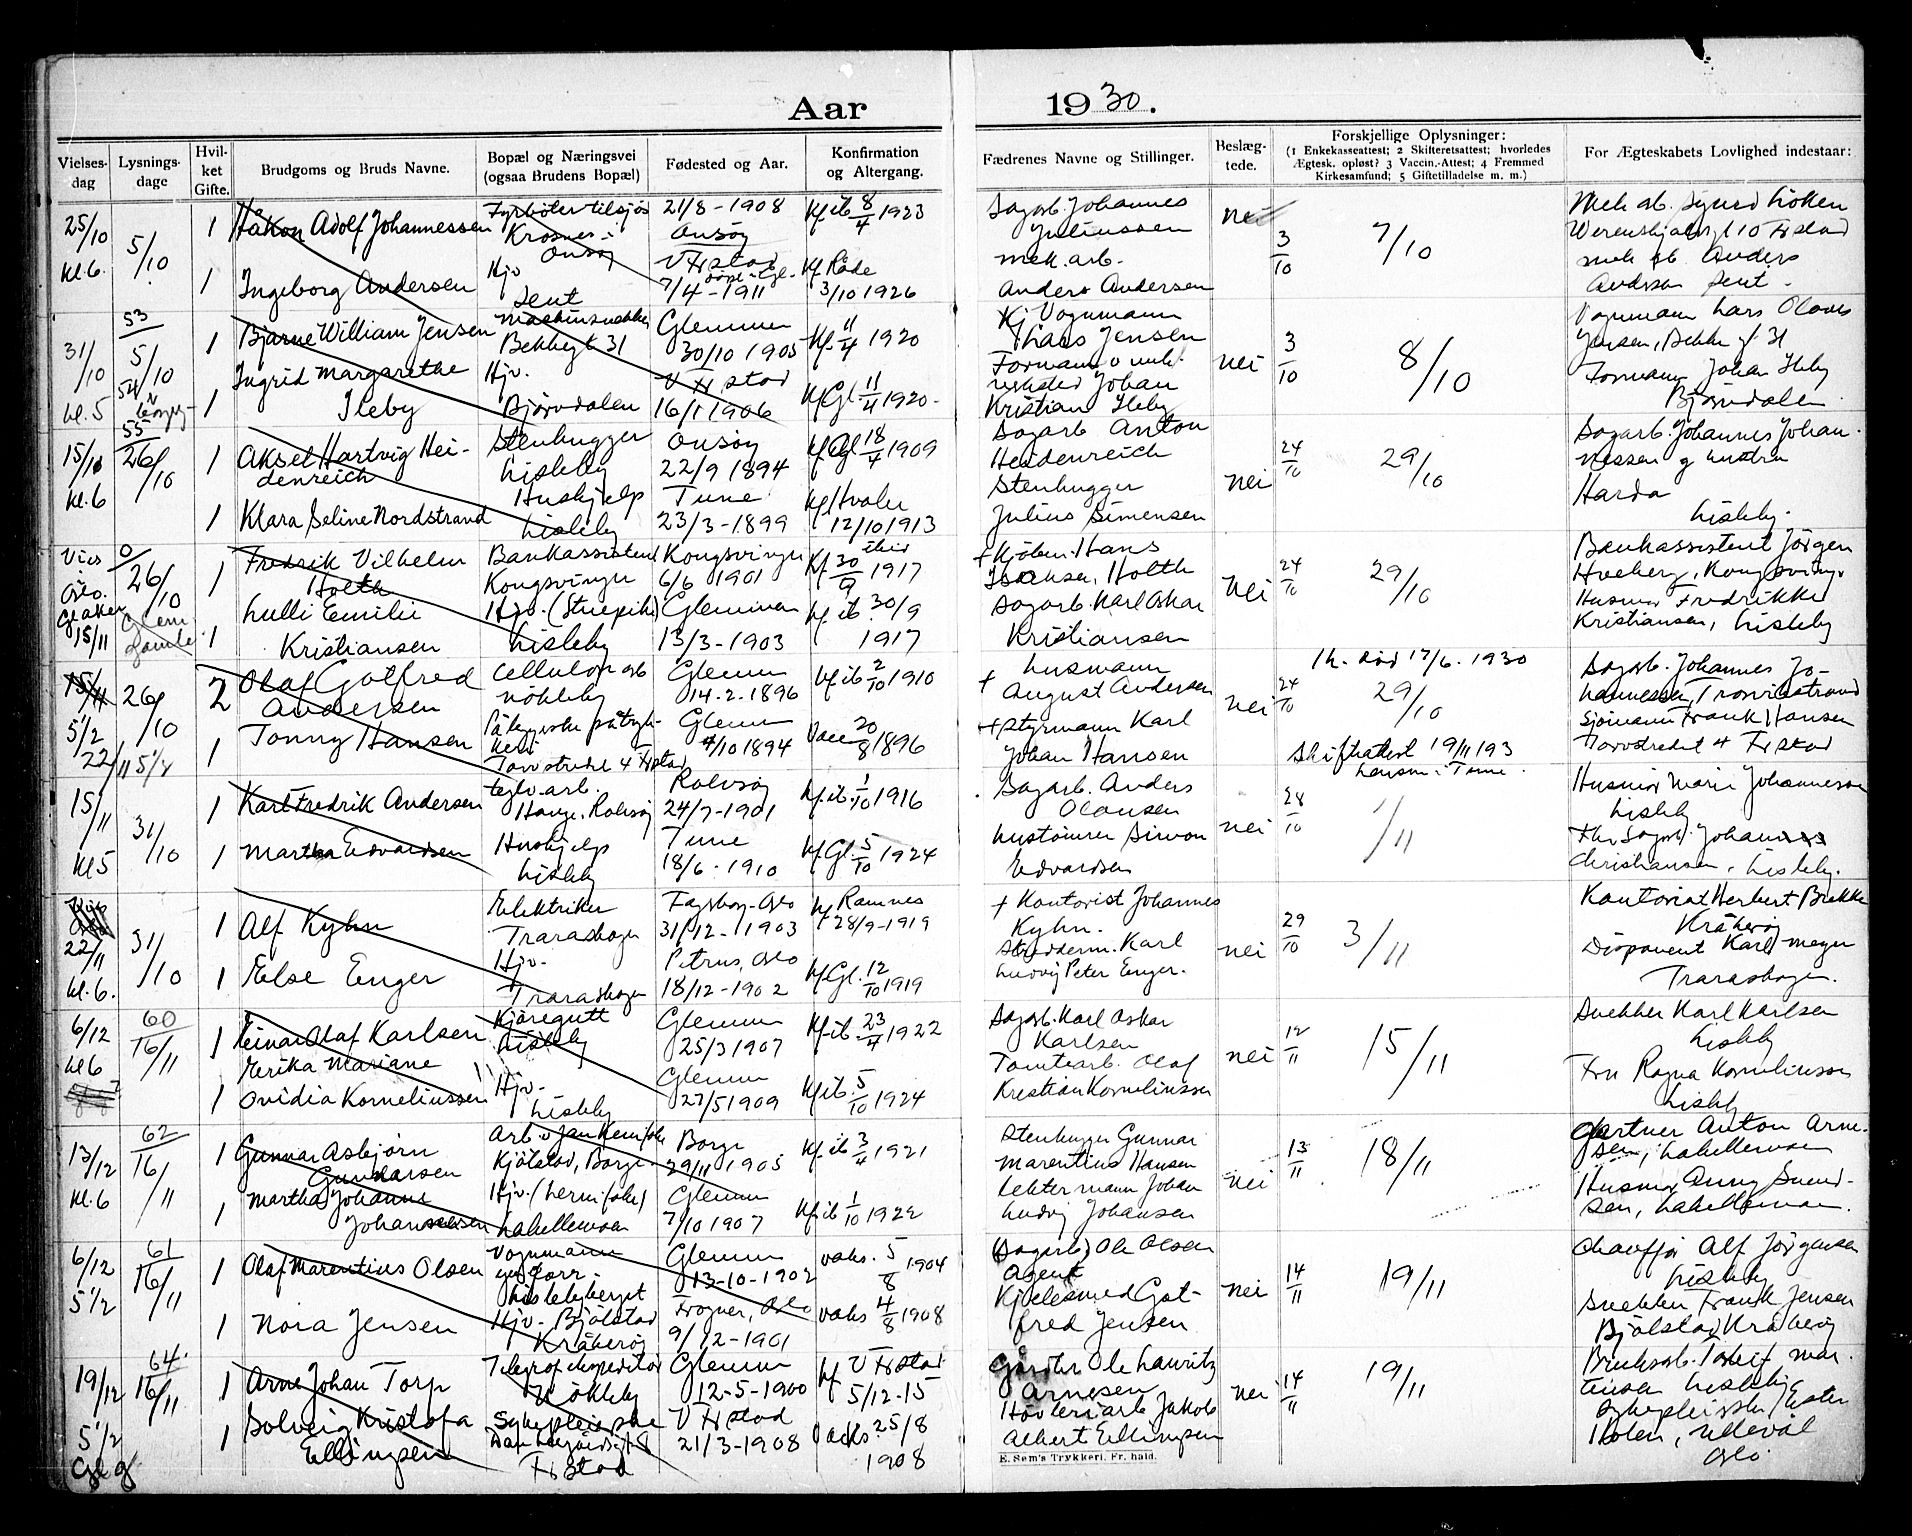 Aar 1930.
Vielses-dag
Lysnings-dage
Hvilket Gifte.
Brudgoms og Bruds Navne.
Bopæl og Næringsvei (ogsaa Brudens Bopæl)
Fødested og Aar.
Konfirmation og Altergang.
Fædrenes Navne og Stillinger.
Beslægtede.
Forskjellige Oplysninger:
(1 Enkekasseattest; 2 Skifteretsattest; hvorledes
Ægtesk. opløst? 3 Vaccin.-Attest; 4 Fremmed
Kirkesamfund; 5 Giftetilladelse m. m.)
For Ægteskabets Lovlighed indestaar:
25/10 kl. 6. 5/10
1 Håkon Adolf Johannessen
Fyrbøter tilsjøs Krosnes - Onsøy
21/8 - 1908 Onsøy
Kf. ib. 8/4 1923
Sagarb. Johannes Juliussen
nei 3/10 7/10
1 Ingeborg Andersen
Hjv. Sent
V Fr stad 7/4 - 1911
Kf Råde 3/10 1926
mek. arb. Anders Andersen
mek ab. Anders
31/10 kl. 5 53 5/10
1 Bjarne William Jensen
Bekkegt 31
Glemmen 30/10 1905
Kf. 11/4 1920
Kj Vognmann Lars Jensen
nei 3/10 8/10
Vognmann Lars Olaves Jensen, Bekkegt. 31
1 Ingrid Margarethe Ileby
Hjv. Bjørndalen
V Fr stad 16/1 1906
Kf Gl. 11/4 1920-
Johan Kristian Ileby
Formann Johan Ileby Bjørndalen
15/11 kl. 6 55 26/10
1 Aksel Hartvig Heidenreich
Stenhugger Lisleby
Onsøy 22/9 1894
Kf Gl 18/4 1909
Sagarb Anton Heidenreich
nei 24/10 29/10
Sagarb. Johannes Johannessen og hustru Harda Lisleby.
1 Klara Seline Nordstrand
Hushjelp Lisleby
Tune 23/3 - 1899
Kf Hvaler 12/10 1913
Stenhugger Julius Simensen
Vies Oslo. 15/11 0/ 26/10
1 Fredrik Vilhelm Holth
Bankassistent Kongsvinger
Kongsvinger 6/6 1901
Kf. 30/9 1917
+ Kjøbm. Hans Holth
nei 24/10 29/10
Bankassistent Jørgen Hveberg, Kongsving.
1 Lulli Emilie Kristiansen
Lisleby
Glemmen 13/3 - 1903
Kf. ib. 30/9 1917
Sagarb. Karl Oskar Kristiansen
Husmor Fredrikke Kristiansen, Lisleby
15/11 5 1/2 26/10
2 Olaf Gotfred Andersen
Cellulosearb Nøkleby
Glemm 14.2.1896
Kf ib 2/10 1910
+ August Andersen
nei 24/10 29/10
17/6. 1930
Sagarb. Johannes Johannessen, Trosvikstrand
22/11
1 Tonny Hansen
Torvstredet 4 Fr stad
Glemm 4/10 1894
Vacc 20/8 1896
+ Styrmann Karl Johan Hansen
Skifteattest 19/11 193
Sjømann Frank Hansen Torvstredet 4 Fr stad
15/11 kl 5 31/10
1 Karl Fredrik Andersen
teglv. arb. Hauge, Rolvsøy
Rolvsøy 24/7 - 1901
Kf. ib. 1/10 1916
Sagarb. Anders Olausen
nei 28/10 1/11
Husmor Marie Johannessen Lisleby
1 Martha Edvardsen
Hushjelp Lisleby
Tune 18/6. 1910
Kf. Gl. 5/10 1924
Simon Edvardsen
Christiansen, Lisleby.
22/11 kl. 6. 31/10
1 Alf Kyhn
Elektriker Traraskogen
Fagerborg - Oslo 31/12 - 1903
Kf Ramnes 28/9 - 1919
+ Kontorist Johannes Kyhn.
nei 29/10 3/11
Kontorist Herbert Brekke Kråkerøy
1 Else Enger
Hjv. Traraskogen
Petrus, Oslo 18/12 - 1902
Kf. Gl. 12/10 1919
Karl Ludvig Peter Enger.
Disponent Karl Meyer Traraskogen.
6/12 kl 6 60 16/11
1 Einar Olaf Karlsen
Kjøregutt Lisleby
Glemm 25/3 1907
Kf. ib. 23/4 1922
Sagarb. Karl Oskar Karlsen
nei 12/11 15/11
Snekker Karl Karlsen Lisleby
1 Erika Mariane Ovidia Korneliussen
Hjv. Lisleby
Glemm 27/5 1909
Kf ib. 5/10 1924
Tomtearb. Olaf Kristian Korneliussen
Fru Ragna Korneliussen Lisleby
13/12 kl. 6 62 16/11
1 Gunnar Asbjørn Gundersen
Kjølstad, Borge
Borge 29/11 1905
Kf. ib 3/4 1921
Stenhugger Gunnar Marentius Hansen
nei 13/11 18/11
Gartner Anton Arnesen, Lahellemoen
1 Martha Johanne Johansen
Lahellemoen
Glemm 7/10 1907
Kf. ib 1/10 1922
Johan Ludvig Johansen
Husmor Anny Svendsen, Lahellemoen.
6/12 5 1/2 61 16/11
1 Olaf Marentius Olsen
Vognmann Lislebyberget
Glemm 13-10-1902
vaks. 5/8 1904
(Sagarb.) Ole Olsen Agent
nei 14/11 19/11
Chauffør Alf Jørgensen Lisleby
1 Nora Jensen
Hjv. Bjølstad Kråkerøy
Frogner, Oslo 9/12 - 1901
vaks 4/8 1908
Kjelesmed Gotfred Jensen
Snekker Frank Jensen Bjølstad Kråkerøy
19/12 5 1/2 64. 16/11
1 Arne Johan Torp
Telegrafekspeditør Nøkleby
Glemm 12-5-1900
Kf V Fr stad 5/12-15
Gårdbr Ole Lauritz Arnesen
nei 14/11 19/11
Lisleby
1 Solveig Kristofa Ellingsen
Sykepleierske Fr stad
V Fr stad 21/3 - 1908
Vaks. 25/8 1908
Høvleriarb Jakob Albert Ellingsen
Sykepleierske Ester Holen, Ullevål Oslo
E. Sem's Trykkeri, Fr. hald.